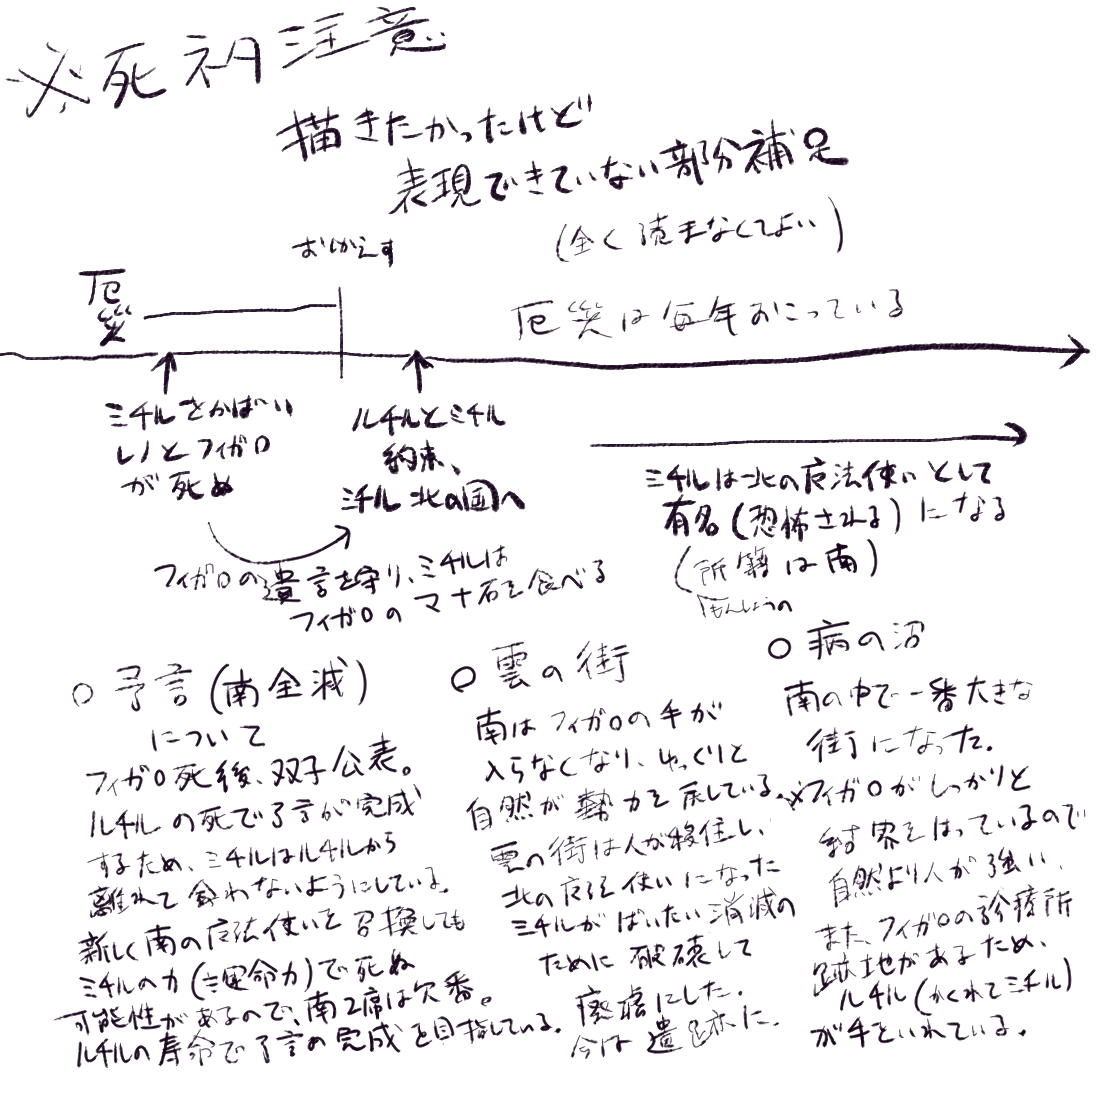 ※死ネタ注意
描きたかったけど
表現できていない部分補足
(全く読まなくてよい)
おいかえす
厄災
厄災は毎年おこっている
ミチルさかばい
レノとフィガロ
が死ぬ
ルチルとミチル
約束、
ミチル北の国へ
フィガロの遺言を守り、ミチルは
フィガロのマナ石を食べる
ミチルは北の魔法使いとして
有名(恐怖される)になる
(所籍は南)
もんしょうの
○予言(南全滅)
について
フィガロ死後、双子公表。
ルチルの死で予言が完成
するため、ミチルはルチルから
離れて会わないようにしている。
新しく南の魔法使いを召換しても
ミチルの力(≒運命力)で死ぬ
可能性があるので、南2席は欠番。
ルチルの寿命で予言の完成を目指している。
○雲の街
南はフィガロの手が
入らなくなり、ゆっくりと
自然が勢力を戻している。
雲の街は人が移住し、
北の魔法使いになった
ミチルがばいたい消滅の
ために破壊して
廃墟にした。
今は遺跡に。
○病の沼
南の中で一番大きな
街になった。
※フィガロがしっかりと
結界をはっているので
自然より人が強い。
また、フィガロの診療所
跡地があるため、
ルチル(かくれてミチル)
が手をいれている。